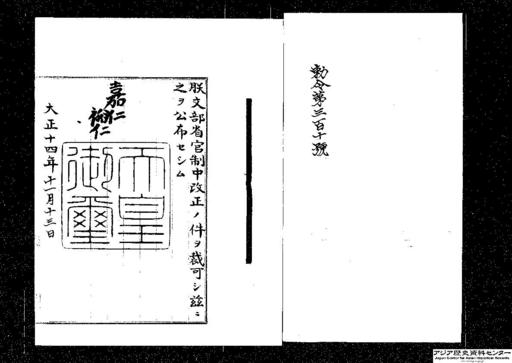 勅令第三百十號
朕文部省官制中改正ノ件ヲ裁可シ茲ニ
之ヲ公布セシム
嘉仁
裕仁
天皇
御璽
大正十四年十一月十三日
アジア歴史資料センター
Japan Center for Asian Historical Records